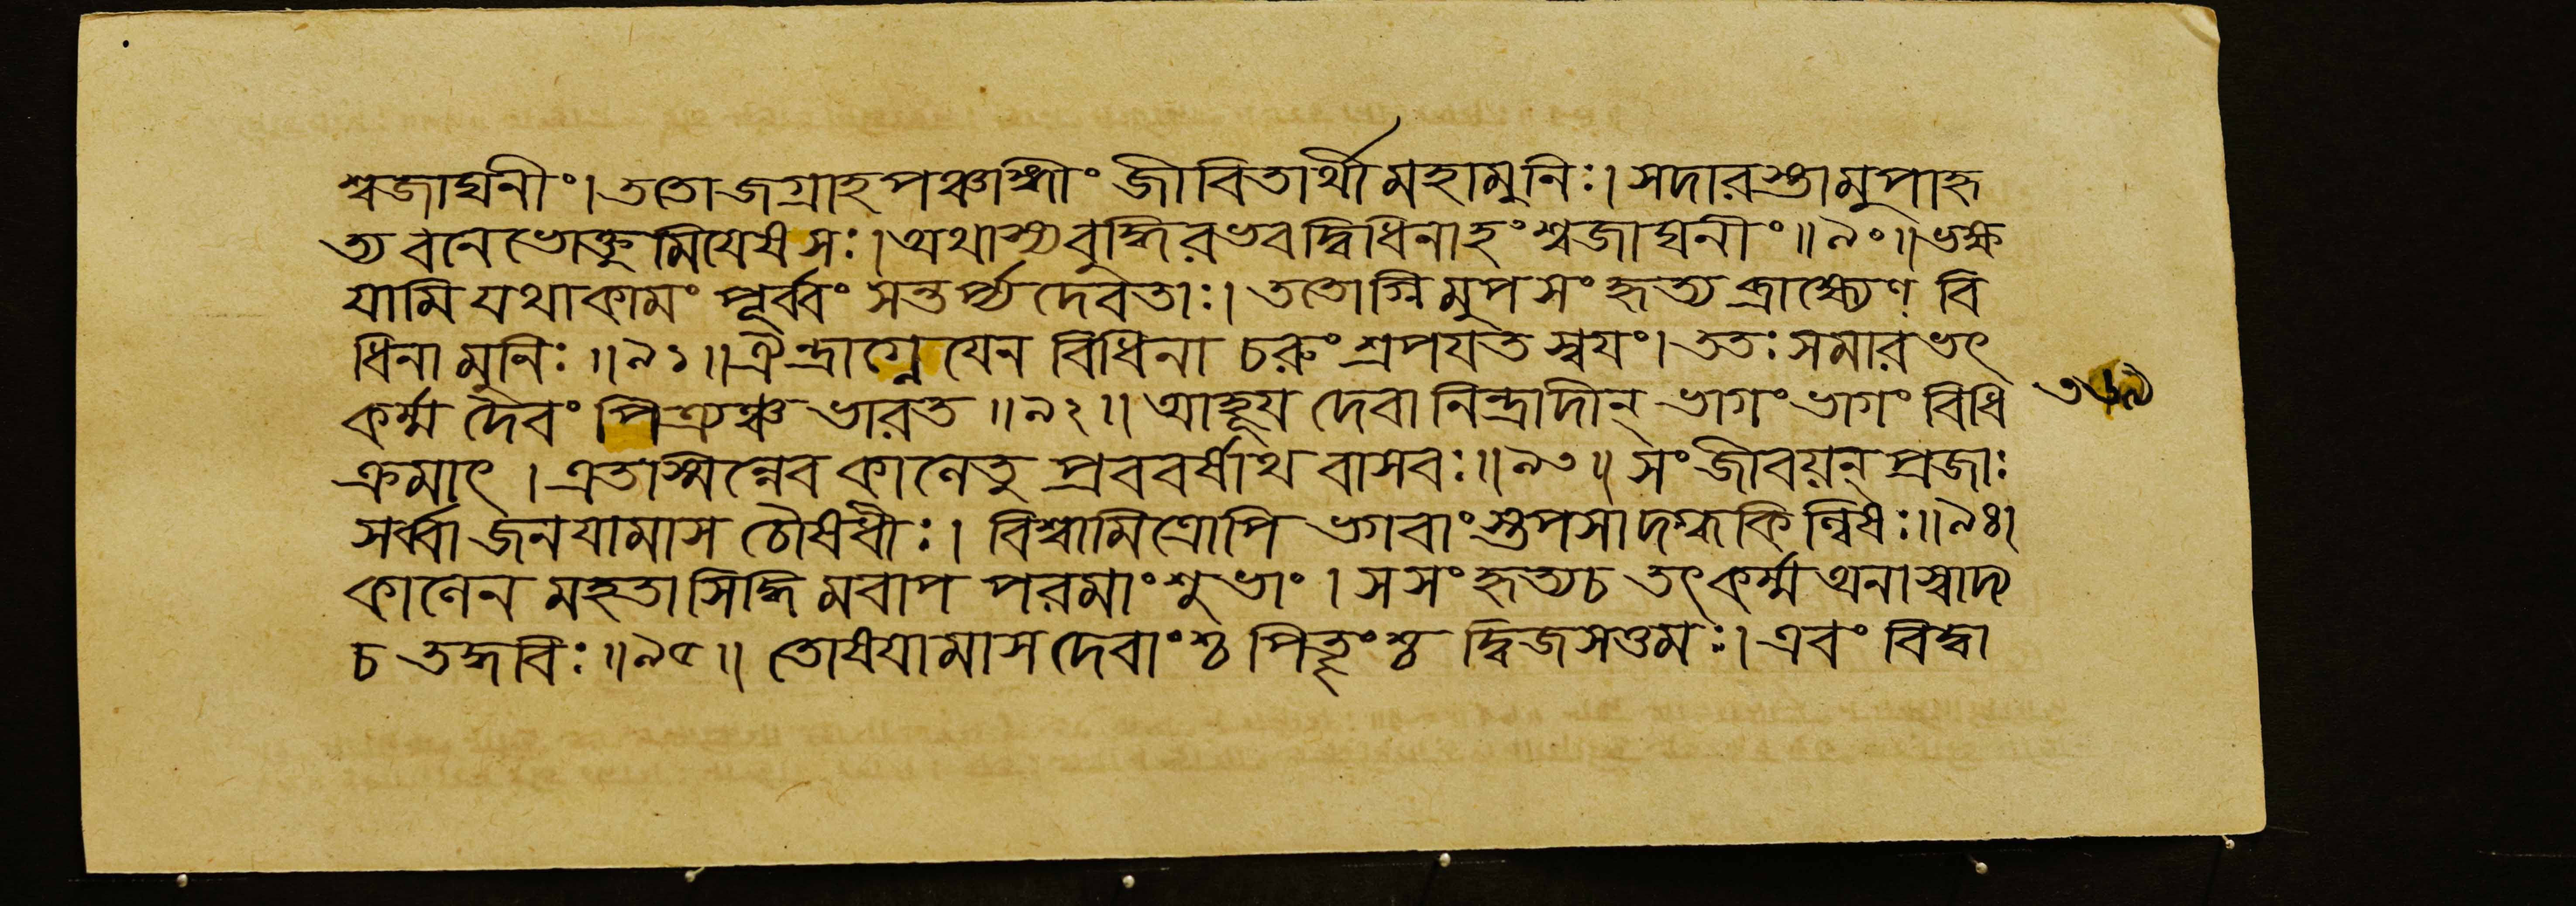 শ্বজাঘনীং। ততো জগ্রাহ পঞ্চাঙ্গীং জীবিতার্থী মহামুনিঃ। সদারস্তামুপাহৃ
ত্য বনে ভোক্তুমিযেষ সঃ। অথাস্য বুদ্ধিরভবদ্বিধিনাহং শ্বজাঘনীং॥৯০॥ ভক্ষ
যামি যথাকামং পূর্ব্বং সন্তর্প্য দেবতাঃ। ততোগ্নিমুপসংহৃত্য ব্রাহ্ম্যেণ বি
ধিনা মুনিঃ॥৯১॥ ঐন্দ্রাগ্নেযেন বিধিনা চরুং শ্রপযত স্বযং। ততঃ সমারভৎ
কর্ম্ম দৈবং পিত্র্যঞ্চ ভারত॥৯২॥ আহূয দেবানিন্দ্রাদীন্ ভাগং ভাগং বিধি
ক্রমাৎ। এতাস্মিন্নেব কালেতু প্রববর্ষাথ বাসবঃ॥৯৩॥ সংজীবয়ন্ প্রজাঃ
সর্ব্বা জনযামাস চৌষধীঃ। বিশ্বামিত্রোপি ভগবাংস্তপসা দগ্ধকিল্বিষঃ॥৯৪।
কালেন মহতা সিদ্ধিমবাপ পরমাং শুভাং। স সংহৃত্য চ তৎকর্ম্ম অনাস্বাদ্য
চ তদ্ধবিঃ॥৯৫॥ তোষযামাস দেবাংশ্চ পিতৄংশ্চ দ্বিজসত্তমঃ। এবং বিদ্বা